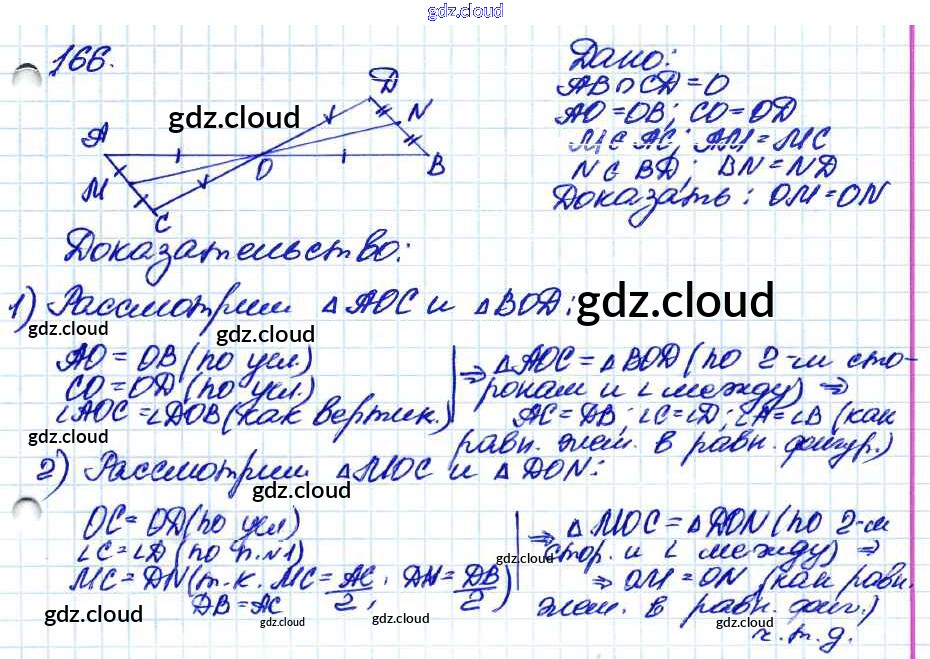 gdz.cloud
166.
Дано:
AB∩CD=O
AO=OB; CO=OD
M∈AC; AM=MC
N∈BD; BN=ND
Доказать: OM=ON
gdz.cloud
A
D
N
M
O
B
C
Доказательство:
1) Рассмотрим △AOC и △BOD:
gdz.cloud
gdz.cloud
gdz.cloud
AO=OB (по усл.)
CO=OD (по усл.)
∠AOC=∠DOB (как вертик.)
⇒ △AOC=△BOD (по 2-м сто-
ронам и ∠ между) ⇒
AC=DB; ∠C=∠D; ∠A=∠B (как
равн. элем. в равн. фигур.)
gdz.cloud
2) Рассмотрим △MOC и △DON:
gdz.cloud
OC=OD (по усл)
∠C=∠D (по п.N1)
MC=DN (т.к. MC=AC/2; DN=DB/2)
DB=AC
⇒ △MOC=△DON (по 2-м
стор. и ∠ между) ⇒
⇒ OM=ON (как равн.
элем. в равн. фиг.)
ч.т.д.
gdz.cloud
gdz.cloud
gdz.cloud
gdz.cloud
gdz.cloud